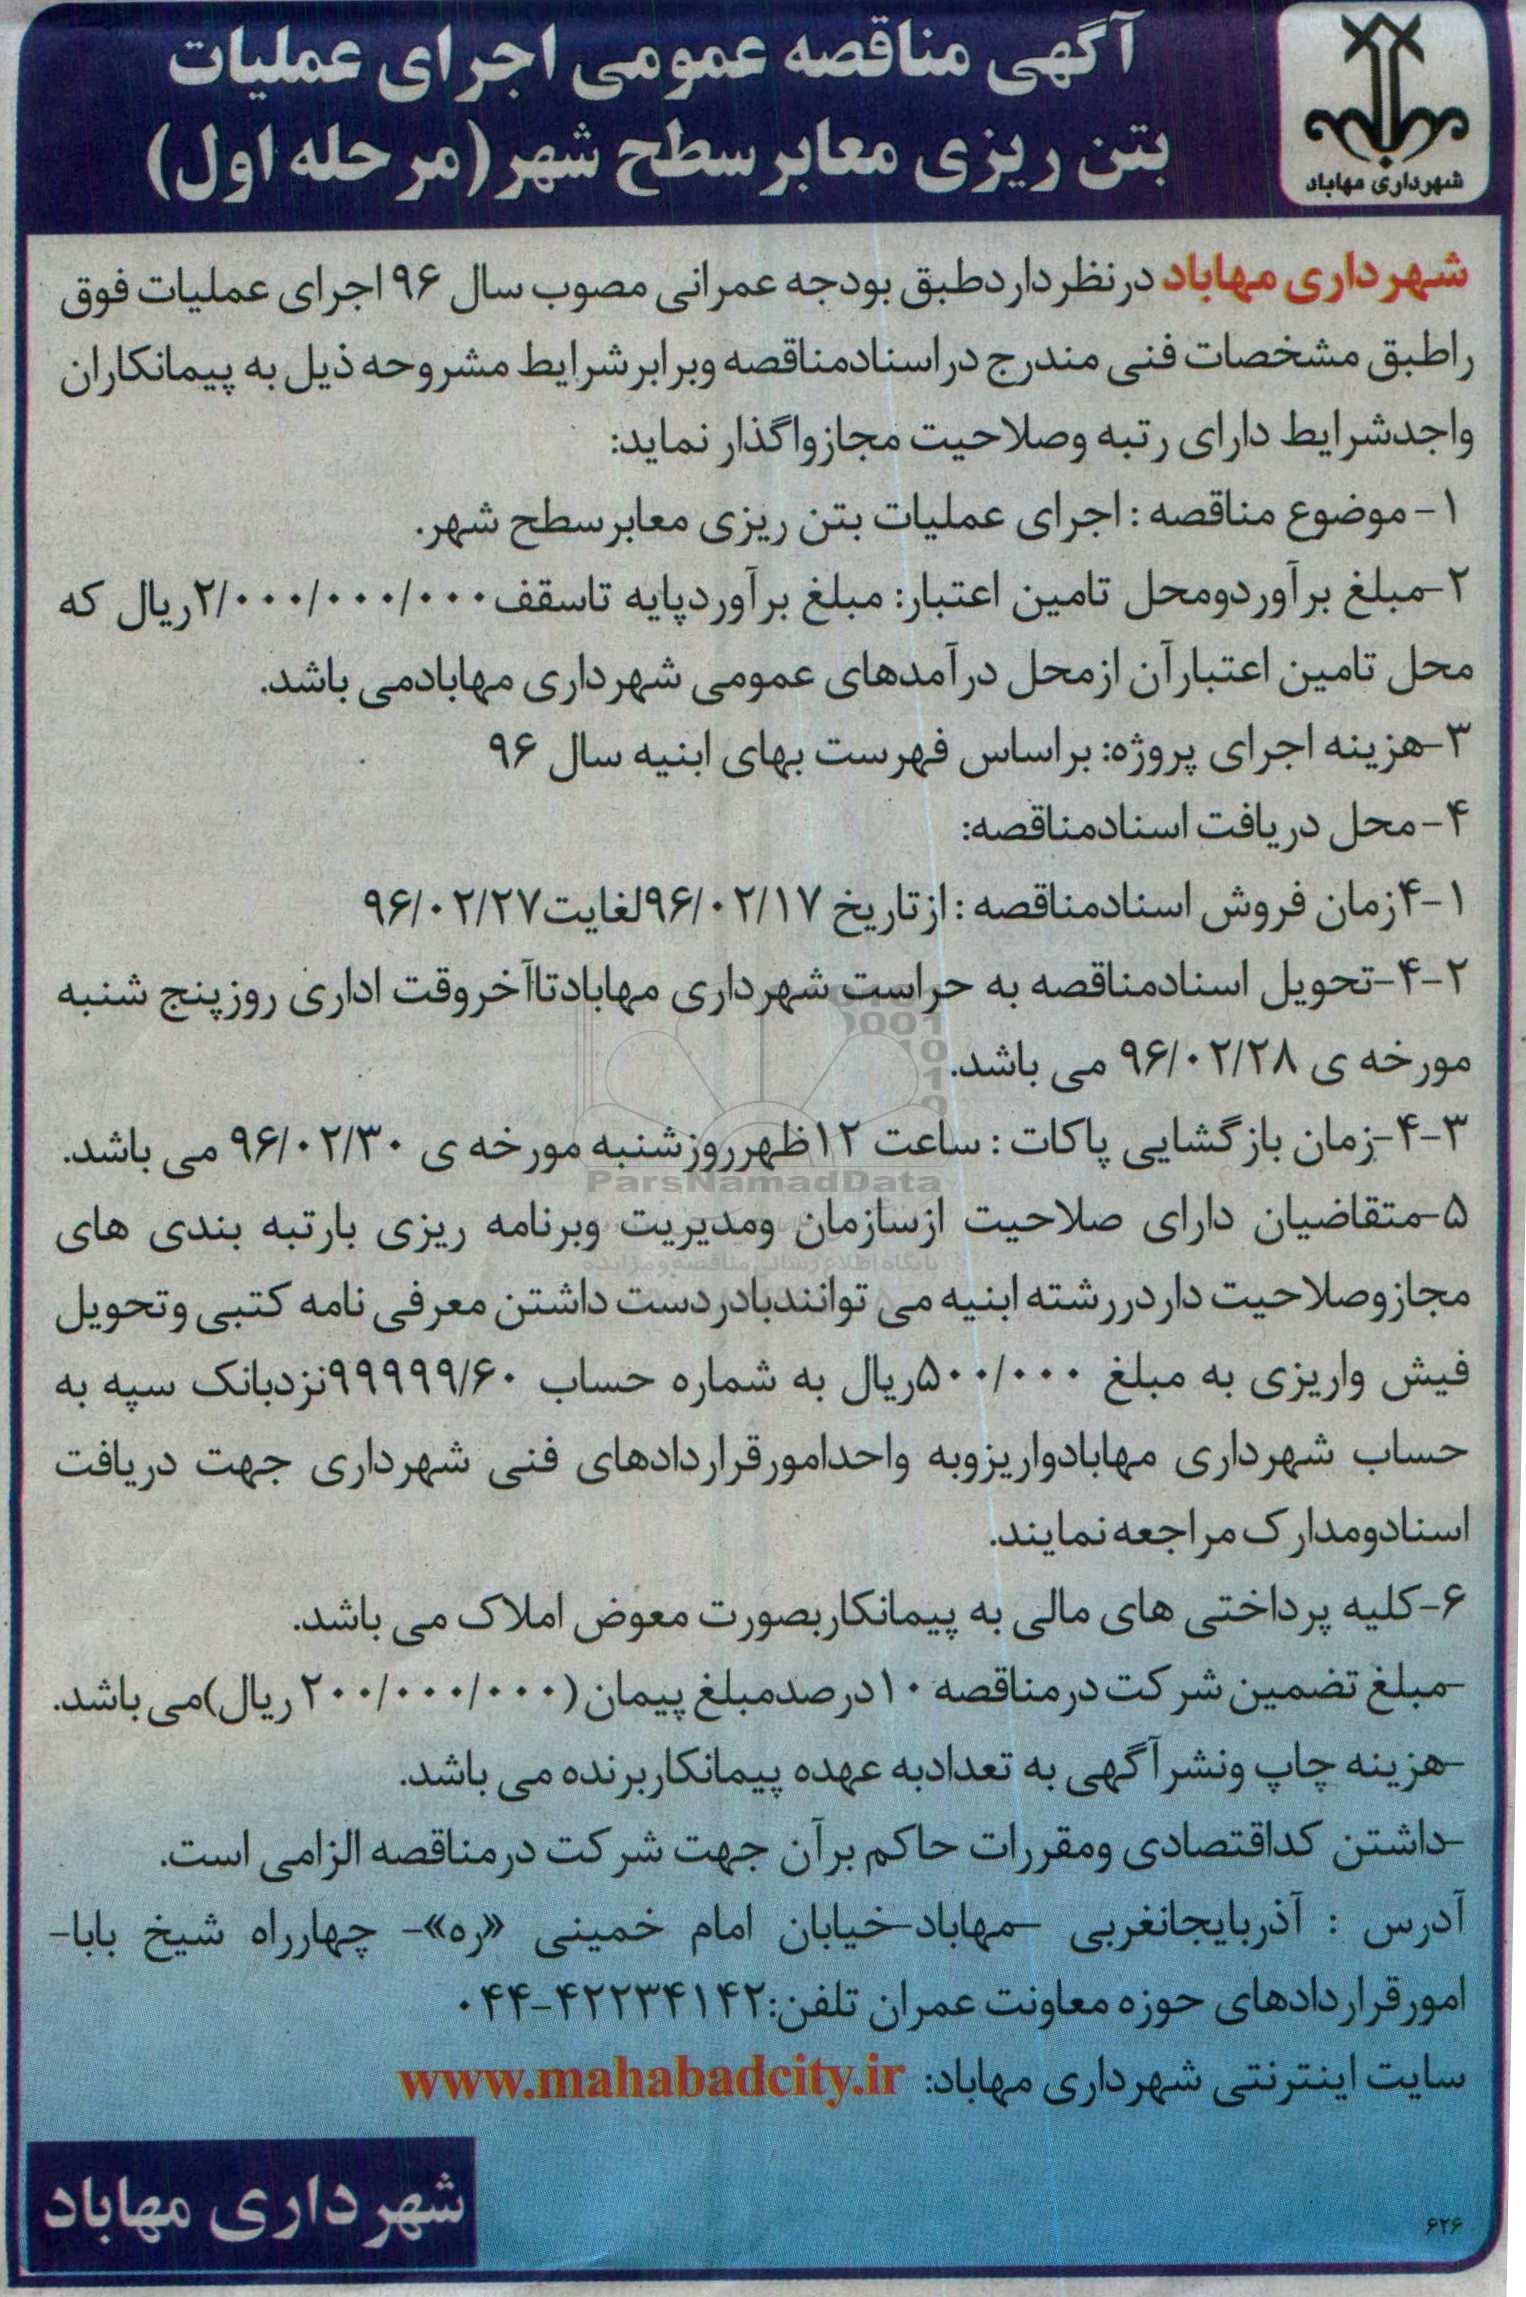 آگهی مناقصه عمومی اجرای عملیات
بتن ریزی معابر سطح شهر (مرحله اول)
شهرداری مهاباد
شهرداری مهاباد درنظرداردطبق بودجه عمرانی مصوب سال ۹۶ اجرای عملیات فوق
راطبق مشخصات فنی مندرج دراسنادمناقصه وبرابرشرایط مشروحه ذیل به پیمانکاران
واجدشرایط دارای رتبه وصلاحیت مجازواگذار نماید:
۱- موضوع مناقصه : اجرای عملیات بتن ریزی معابرسطح شهر.
۲-مبلغ برآوردومحل تامین اعتبار: مبلغ برآوردپایه تاسقف ۲/۰۰۰/۰۰۰/۰۰۰ریال که
محل تامین اعتبارآن ازمحل درآمدهای عمومی شهرداری مهابادمی باشد.
۳-هزینه اجرای پروژه: براساس فهرست بهای ابنیه سال ۹۶
۴- محل دریافت اسنادمناقصه:
۴-۱زمان فروش اسنادمناقصه : ازتاریخ ۹۶/۰۲/۱۷لغایت۹۶/۰۲/۲۷
۴-۲-تحویل اسنادمناقصه به حراست شهرداری مهابادتاآخروقت اداری روزپنج شنبه
مورخه ی ۹۶/۰۲/۲۸ می باشد.
۴-۳-زمان بازگشایی پاکات : ساعت ۱۲ظهرروزشنبه مورخه ی ۹۶/۰۲/۳۰ می باشد.
ParsNamadData
۵-متقاضیان دارای صلاحیت ازسازمان ومدیریت وبرنامه ریزی بارتبه بندی های
پایگاه اطلاع رسانی مناقصه و مزایده
مجازوصلاحیت داردررشته ابنیه می توانندبادردست داشتن معرفی نامه کتبی وتحویل
فیش واریزی به مبلغ ۵۰۰/۰۰۰ریال به شماره حساب ۹۹۹۹۹/۶۰نزدبانک سپه به
حساب شهرداری مهابادواریزوبه واحدامورقراردادهای فنی شهرداری جهت دریافت
اسنادومدارک مراجعه نمایند.
۶-کلیه پرداختی های مالی به پیمانکاربصورت معوض املاک می باشد.
-مبلغ تضمین شرکت درمناقصه ۱۰درصدمبلغ پیمان (۲۰۰/۰۰۰/۰۰۰ ریال)می باشد.
-هزینه چاپ ونشرآگهی به تعدادبه عهده پیمانکاربرنده می باشد.
-داشتن کداقتصادی ومقررات حاکم برآن جهت شرکت درمناقصه الزامی است.
آدرس : آذربایجانغربی -مهاباد-خیابان امام خمینی «ره»- چهارراه شیخ بابا-
امورقراردادهای حوزه معاونت عمران تلفن:۴۲۲۳۴۱۴۲-۰۴۴
سایت اینترنتی شهرداری مهاباد: www.mahabadcity.ir
شهرداری مهاباد
۶۲۶